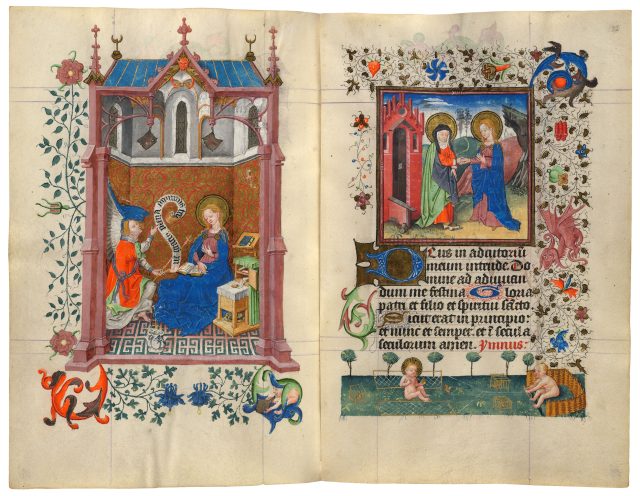 Deus in adiutoriū
meum intende. Do
mine ad adiuuan
dum me festina Gloria
patri et filio et spiritui sācto
Sicut erat in principio
et nunc et semper et ī secula
seculorum amen. Ymnus: